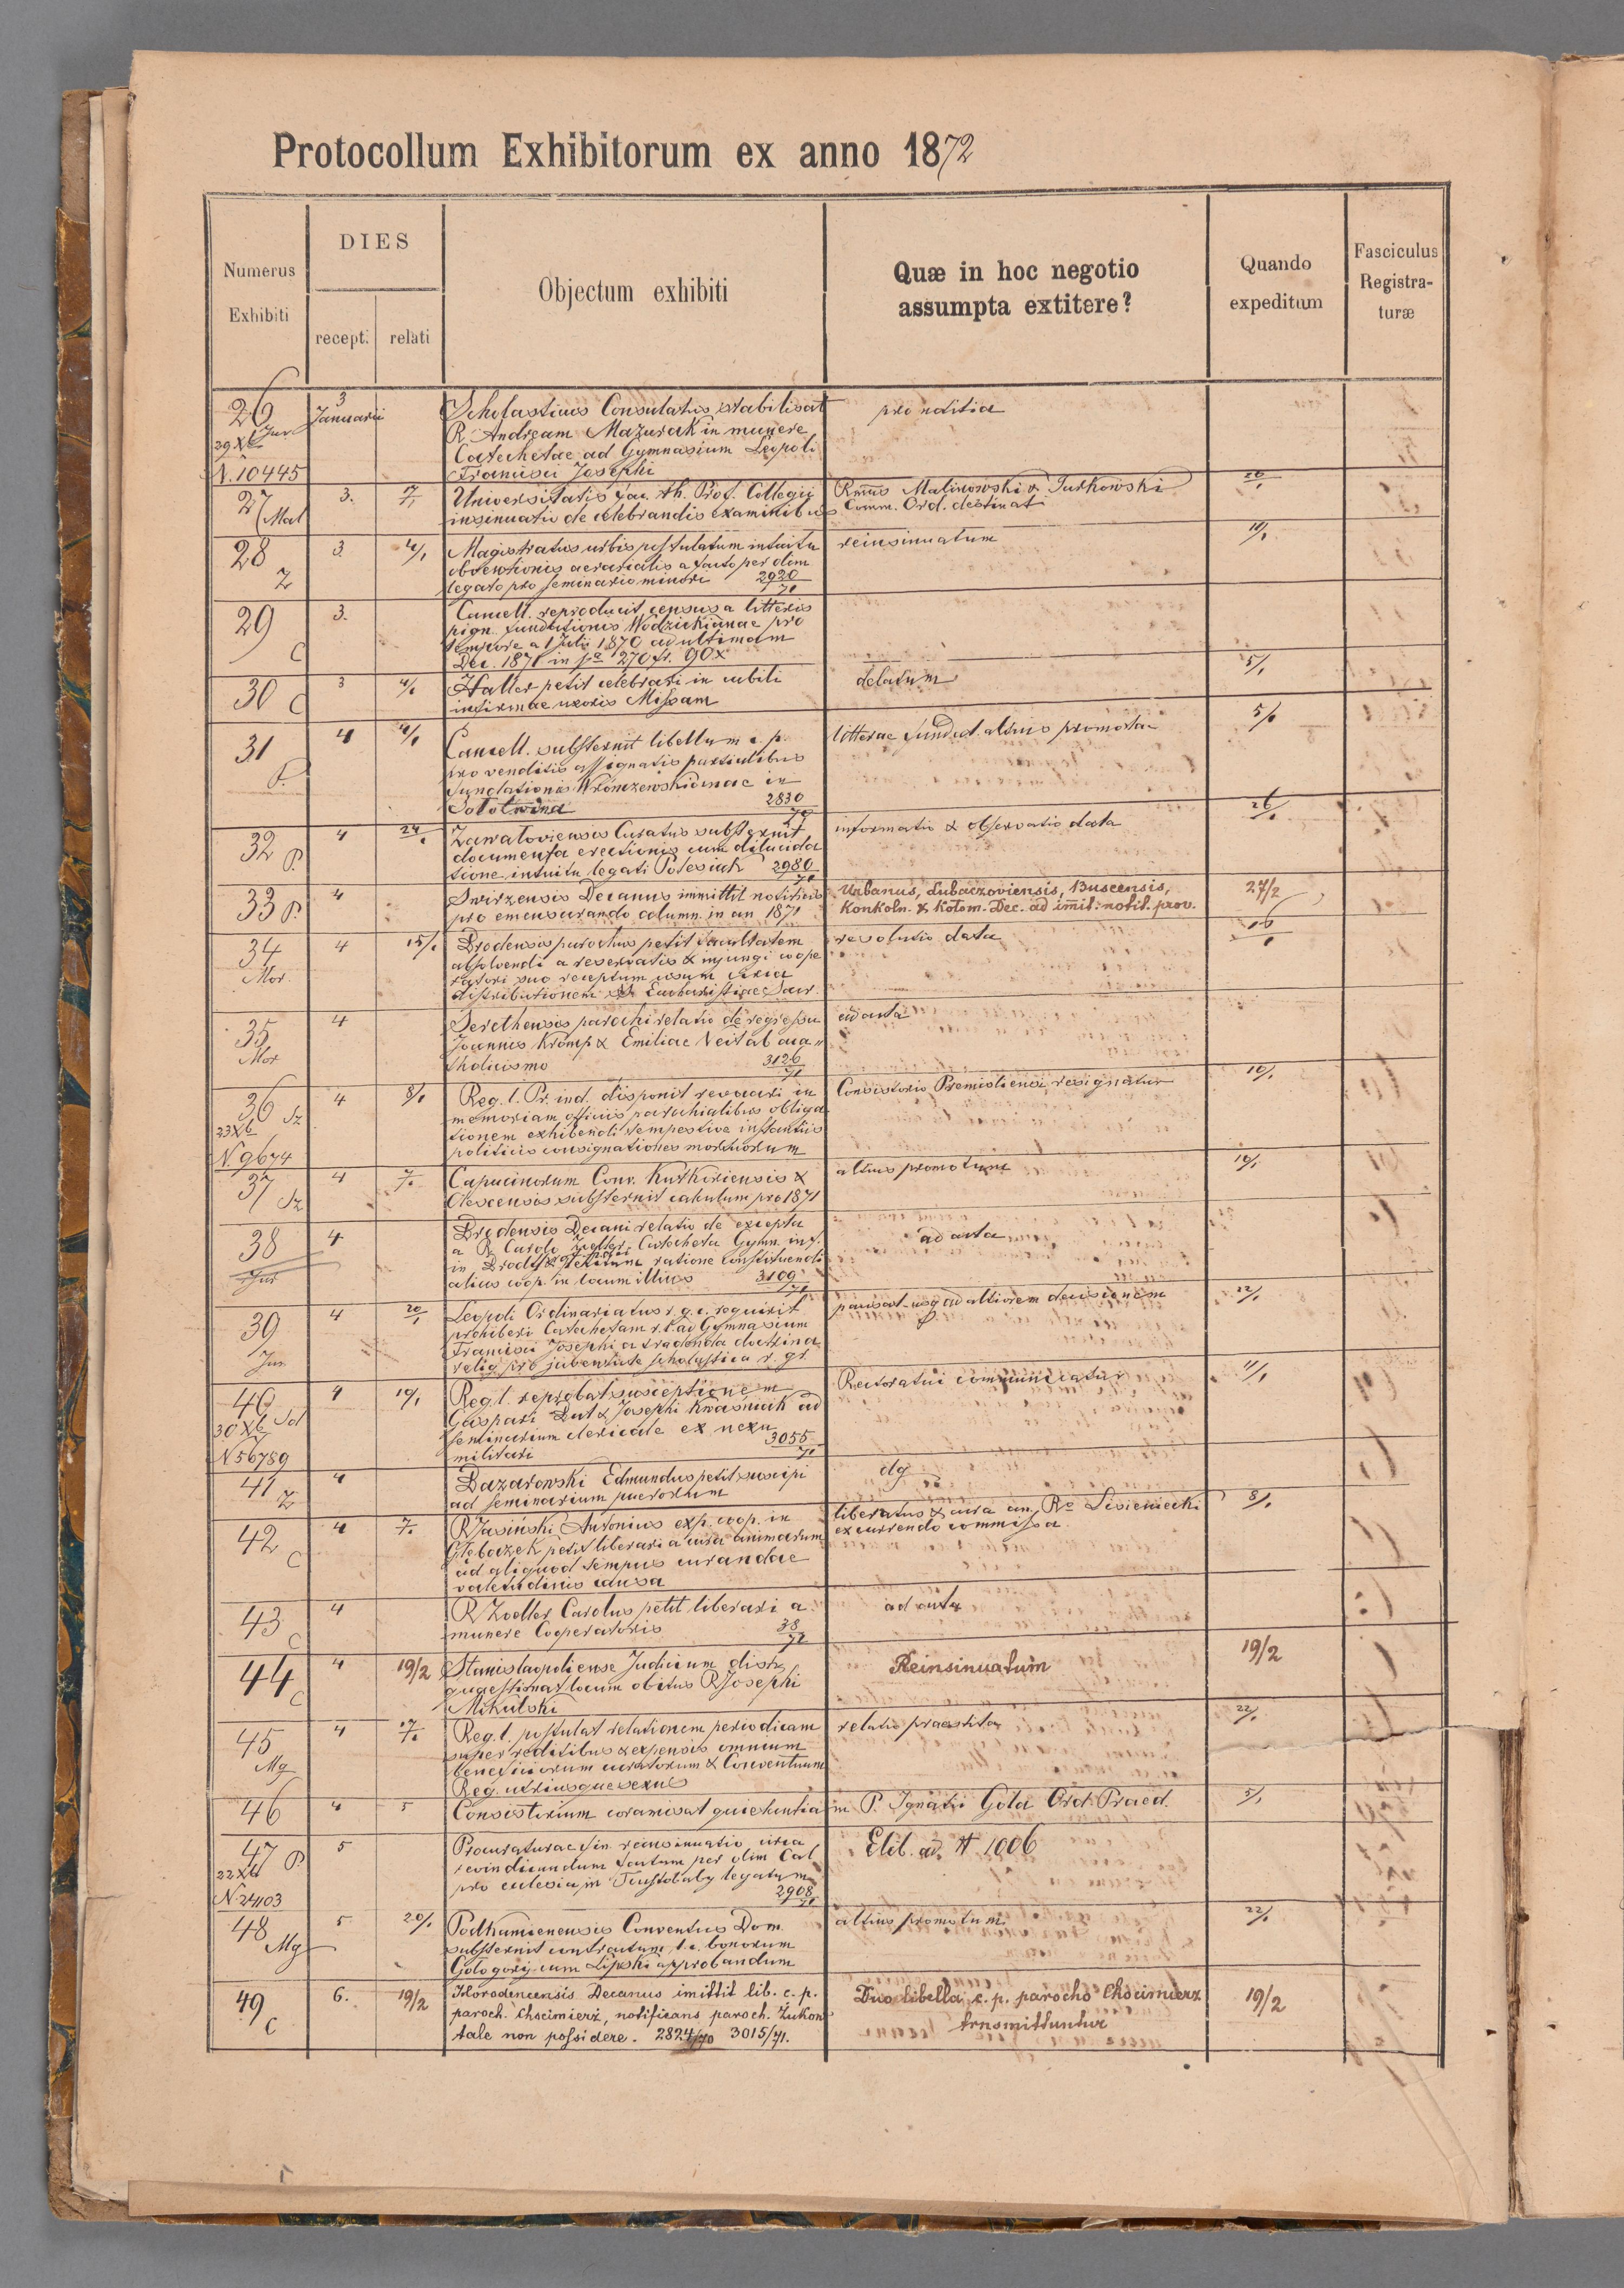 Protocollum Exhibitorum ex anno 1872
Numerus Exhibiti
DIES
recept. relati
Objectum exhibiti
Quæ in hoc negotio assumpta extitere?
Quando expeditum
Fasciculus Registra-turæ
26 Jur 3 Januarii Scholasticus Consulatus stabilisat pro notitia
R. Andream Mazurak in munere
Catechetae ad Gymnasium Leopoli
N. 10445 Francisci Josephi
27 Mat 3. 17/1 Universitatis fac. th. Prof. Collegii Rmus Malinowski & Turkowski 26/1
insinuatio de celebrandis examinibus Comm. Ord. destinat
28 Z 3. 4/1 Magistratus urbis postulatum intuitu reinsinuatum 10/1
obventionis aerarialis a facto per olim
legato pro seminario minori 2920/71
29 C 3. Cancell. reproducit census a litteris
pign. fundationis Wodzickianae pro
tempore a 1 Julii 1870 ad ultimam
Dec. 1871 in 270 fr. 90x
30 C 3 4/1 Haller petit celebrari in cubili delatum 5/1
infirmae uxoris Missam
31 P. 4 4/1 Cancell. substernit libellum c. p. litterae fundat. altius promotae 5/1
pro venditis assignatis partialibus
fundationis Wrónczewskianae in
Sołotwina 2830/70
32 P. 4 24/1 Zawałoviensis Curatus substernit informatio & observatio data 26/1
documenta erectionis cum dilucida
tione intuitu legati Polesiuk 2980/71
33 P. 4 Swirzensis Decanus immittit notitias Urbanus, Lubaczoviensis, Buscensis, 27/2
pro emensurando column. in an 1871 Konkoln. & Kołom. Dec. ad immit. notit. prov.
34 Mor 4 15/1 Brodensis parochus petit facultatem resolutio data 16/1
absolvendi a reservatis & injungi coope
ratori suo receptum usum circa
distributionem SS. Eucharistiae Sacr.
35 Mor 4 Serethensis parochi relatio de regressu ad acta
Joannis Kromp & Emiliae Veit ab aca
tholicismo 3126/71
36 Sz 4 8/1 Reg. l. Pr. ind. disponit revocari in Consistorio Premisliensi resignatur 10/1
memoriam officiis parochialibus obliga
tionem exhibendi tempestive instantiis
N 9674 politicis consignationes mortuorum
37 Sz 4 7/1 Capucinorum Conv. Kutkoriensis & altius promotum 10/1
Olescensis substernit calculum pro 1871
38 Jur 4 Brodensis Decani relatio de excepta ad acta
a R. Carolo Zoeller Catecheta Gymn. inf.
in Brody ratione constituendi
alius coop. in locum illius 3109/71
39 Jur 4 20/1 Leopoli Ordinariatus r. g. c. requirit pausat usq ad altiorem decisionem 22/1
prohiberi Catechetam r. l. ad Gymnasium
Francisci Josephi a tradenda doctrina
relig. pro juventute scholastica r. gr.
40 Sd 4 10/1 Reg. l. reprobat susceptionem Rectoratui communicatur 11/1
Gaspari Dut & Josephi Kwaśniak ad
seminarium clericale ex nexu
N 56789 militari 3055/71
41 Z 4 Bazarowski Edmundus petit suscipi dg
ad seminarium puerorum
42 C 4 7/1 R Jasiński Antonius exp. coop. in liberatus & cura an. Ro Lisieniecki 8/1
Głęboczek petit liberari a cura animarum excurrendo commissa
ad aliquod tempus curandae
valetudinis causa
43 C 4 R Zoeller Carolus petit liberari a ad acta
munere Cooperatoris 38/72
44 C 4 19/2 Stanislaopoliense Judicium distr. Reinsinuatum 19/2
quaestionat locum obitus R Josephi
Mikulski
45 Mg 4 17/1 Reg. l. postulat relationem periodicam relatio praestita 22/1
super reditibus & expensis omnium
beneficiorum curatorum & Conventuum
Reg. utriusque sexus
46 4 5 Consistorium coramisat quiehentiam P. Ignatii Gola Ord. Praed. 5/1
47 P 5 Procuraturae fin. reinsinuatio circa Elib. ad N 1006
revindicandum factum per olim Cal
pro ecclesia in Tustobaby legatum
N 24103 2908/71
48 Mg 5 20/1 Podkamienensis Conventus Dom. altius promotum 22/1
substernit contractum l. c. bonorum
Gołogory cum Lipski approbandum
49 C 6. 19/2 Horodencensis Decanus imittit lib. c. p. Duo libella c. p. parocho Chocimierz 19/2
paroch. Choсimierz, notificans paroch. Żukow trnsmittuntur
tale non possidere. 2824/70 3015/71.